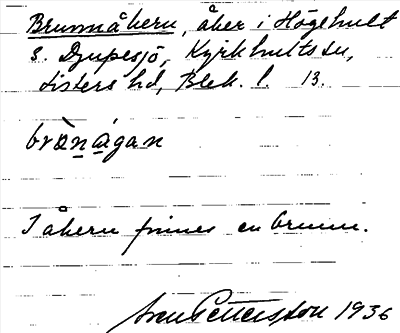 Brunnåkern, åker i Högehult
S. Djupesjö, Kyrkhults sn,
Listers hd, Blek. l. 13.
brònågan
I åkern finnes en brunn.
Sven Pettersson 1936